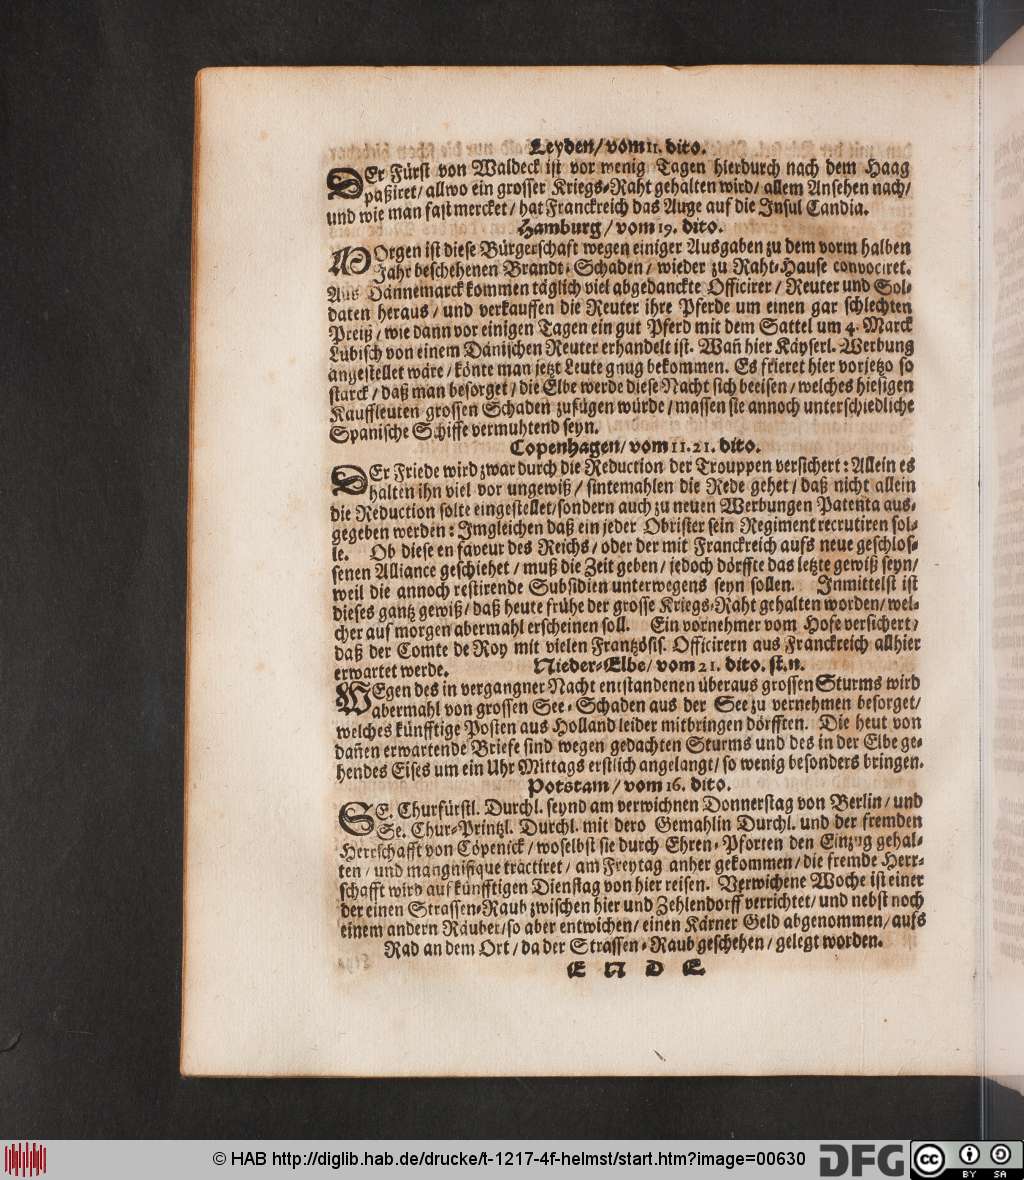 Leyden/ vom 11. dito.
DEr Fürst von Waldeck ist vor wenig Tagen hierdurch nach dem Haag
paßiret/ allwo ein grosser Kriegs-Raht gehalten wird/ allem Ansehen nach/
und wie man fast mercket/ hat Franckreich das Auge auf die Insul Candia.
Hamburg/ vom 19. dito.
MOrgen ist diese Bürgerschaft wegen einiger Ausgaben zu dem vorm halben
Jahr beschehenen Brandt-Schaden/ wieder zu Raht-Hause convociret.
Aus Dännemarck kommen täglich viel abgedanckte Officirer/ Reuter und Sol-
daten heraus/ und verkauffen die Reuter ihre Pferde um einen gar schlechten
Preiß/ wie dann vor einigen Tagen ein gut Pferd mit dem Sattel um 4. Marck
Lübisch von einem Dänischen Reuter erhandelt ist. Wañ hier Käyserl. Werbung
angestellet wäre/ könte man jetzt Leute gnug bekommen. Es frieret hier vorjetzo so
starck/ daß man besorget/ die Elbe werde diese Nacht sich beeisen/ welches hiesigen
Kauffleuten grossen Schaden zufügen würde/ massen sie annoch unterschiedliche
Spanische Schiffe vermuhtend seyn.
Copenhagen/ vom 11.21. dito.
DEr Friede wird zwar durch die Reduction der Trouppen versichert: Allein es
halten ihn viel vor ungewiß/ sintemahlen die Rede gehet/ daß nicht allein
die Reduction solte eingestellet/ sondern auch zu neuen Werbungen Patenta aus-
gegeben werden: Imgleichen daß ein jeder Obrister sein Regiment recrutiren sol-
le. Ob diese en faveur des Reichs/ oder der mit Franckreich aufs neue geschlos-
senen Alliance geschiehet/ muß die Zeit geben/ jedoch dörffte das letzte gewiß seyn/
weil die annoch restirende Subsidien unterwegens seyn sollen. Inmittelst ist
dieses gantz gewiß/ daß heute frühe der grosse Kriegs-Raht gehalten worden/ wel-
cher auf morgen abermahl erscheinen soll. Ein vornehmer vom Hofe versichert/
daß der Comte de Roy mit vielen Frantzösis. Officirern aus Franckreich allhier
erwartet werde. Nieder-Elbe/ vom 21. dito. st. n.
WEgen des in vergangner Nacht entstandenen überaus grossen Sturms wird
abermahl von grossen See-Schaden aus der See zu vernehmen besorget/
welches künfftige Posten aus Holland leider mitbringen dörfften. Die heut von
dañen erwartende Briefe sind wegen gedachten Sturms und des in der Elbe ge-
hendes Eises um ein Uhr Mittags erstlich angelangt/ so wenig besonders bringen.
Potstam/ vom 16. dito.
SE. Churfürstl. Durchl. seynd am verwichnen Donnerstag von Berlin/ und
Se. Chur-Printzl. Durchl. mit dero Gemahlin Durchl. und der fremden
Herrschafft von Cöpenick/ woselbst sie durch Ehren-Pforten den Einzug gehal-
ten/ und mangnifique tractiret/ am Freytag anher gekommen/ die fremde Herr-
schafft wird auf künfftigen Dienstag von hier reisen. Verwichene Woche ist einer
der einen Strassen-Raub zwischen hier und Zehlendorff verrichtet/ und nebst noch
einem andern Räuber/ so aber entwichen/ einen Kärner Geld abgenommen/ aufs
Rad an dem Ort/ da der Strassen-Raub geschehen/ gelegt worden.
E N D E
© HAB http://diglib.hab.de/drucke/t-1217-4f-helmst/start.htm?image=00630
DFG
cc BY SA